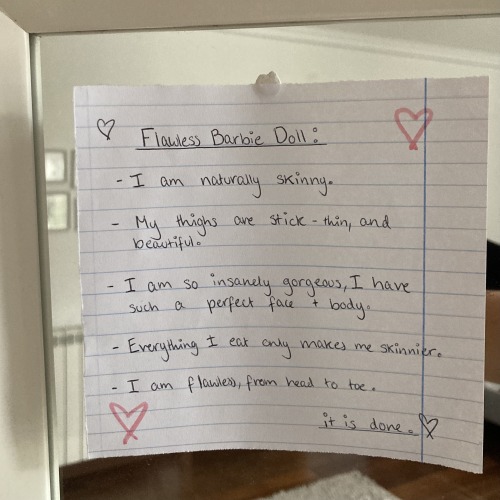 Flawless Barbie Doll:
- I am naturally skinny.
- My thighs are stick-thin, and
beautiful.
- I am so insanely gorgeous, I have
such a perfect face + body.
- Everything I eat only makes me skinnier.
- I am flawless, from head to toe.
it is done.